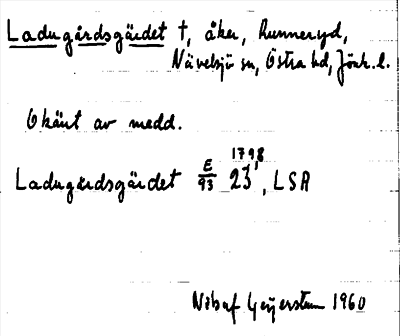 Ladugårdsgärdet †, åker, Runneryd,
Nävelsjö sn, Östra hd, Jönk.l.
Okänt av medd.
Ladugårdsgärdet E/93 23, 1798, LSA
Geijerstam 1960